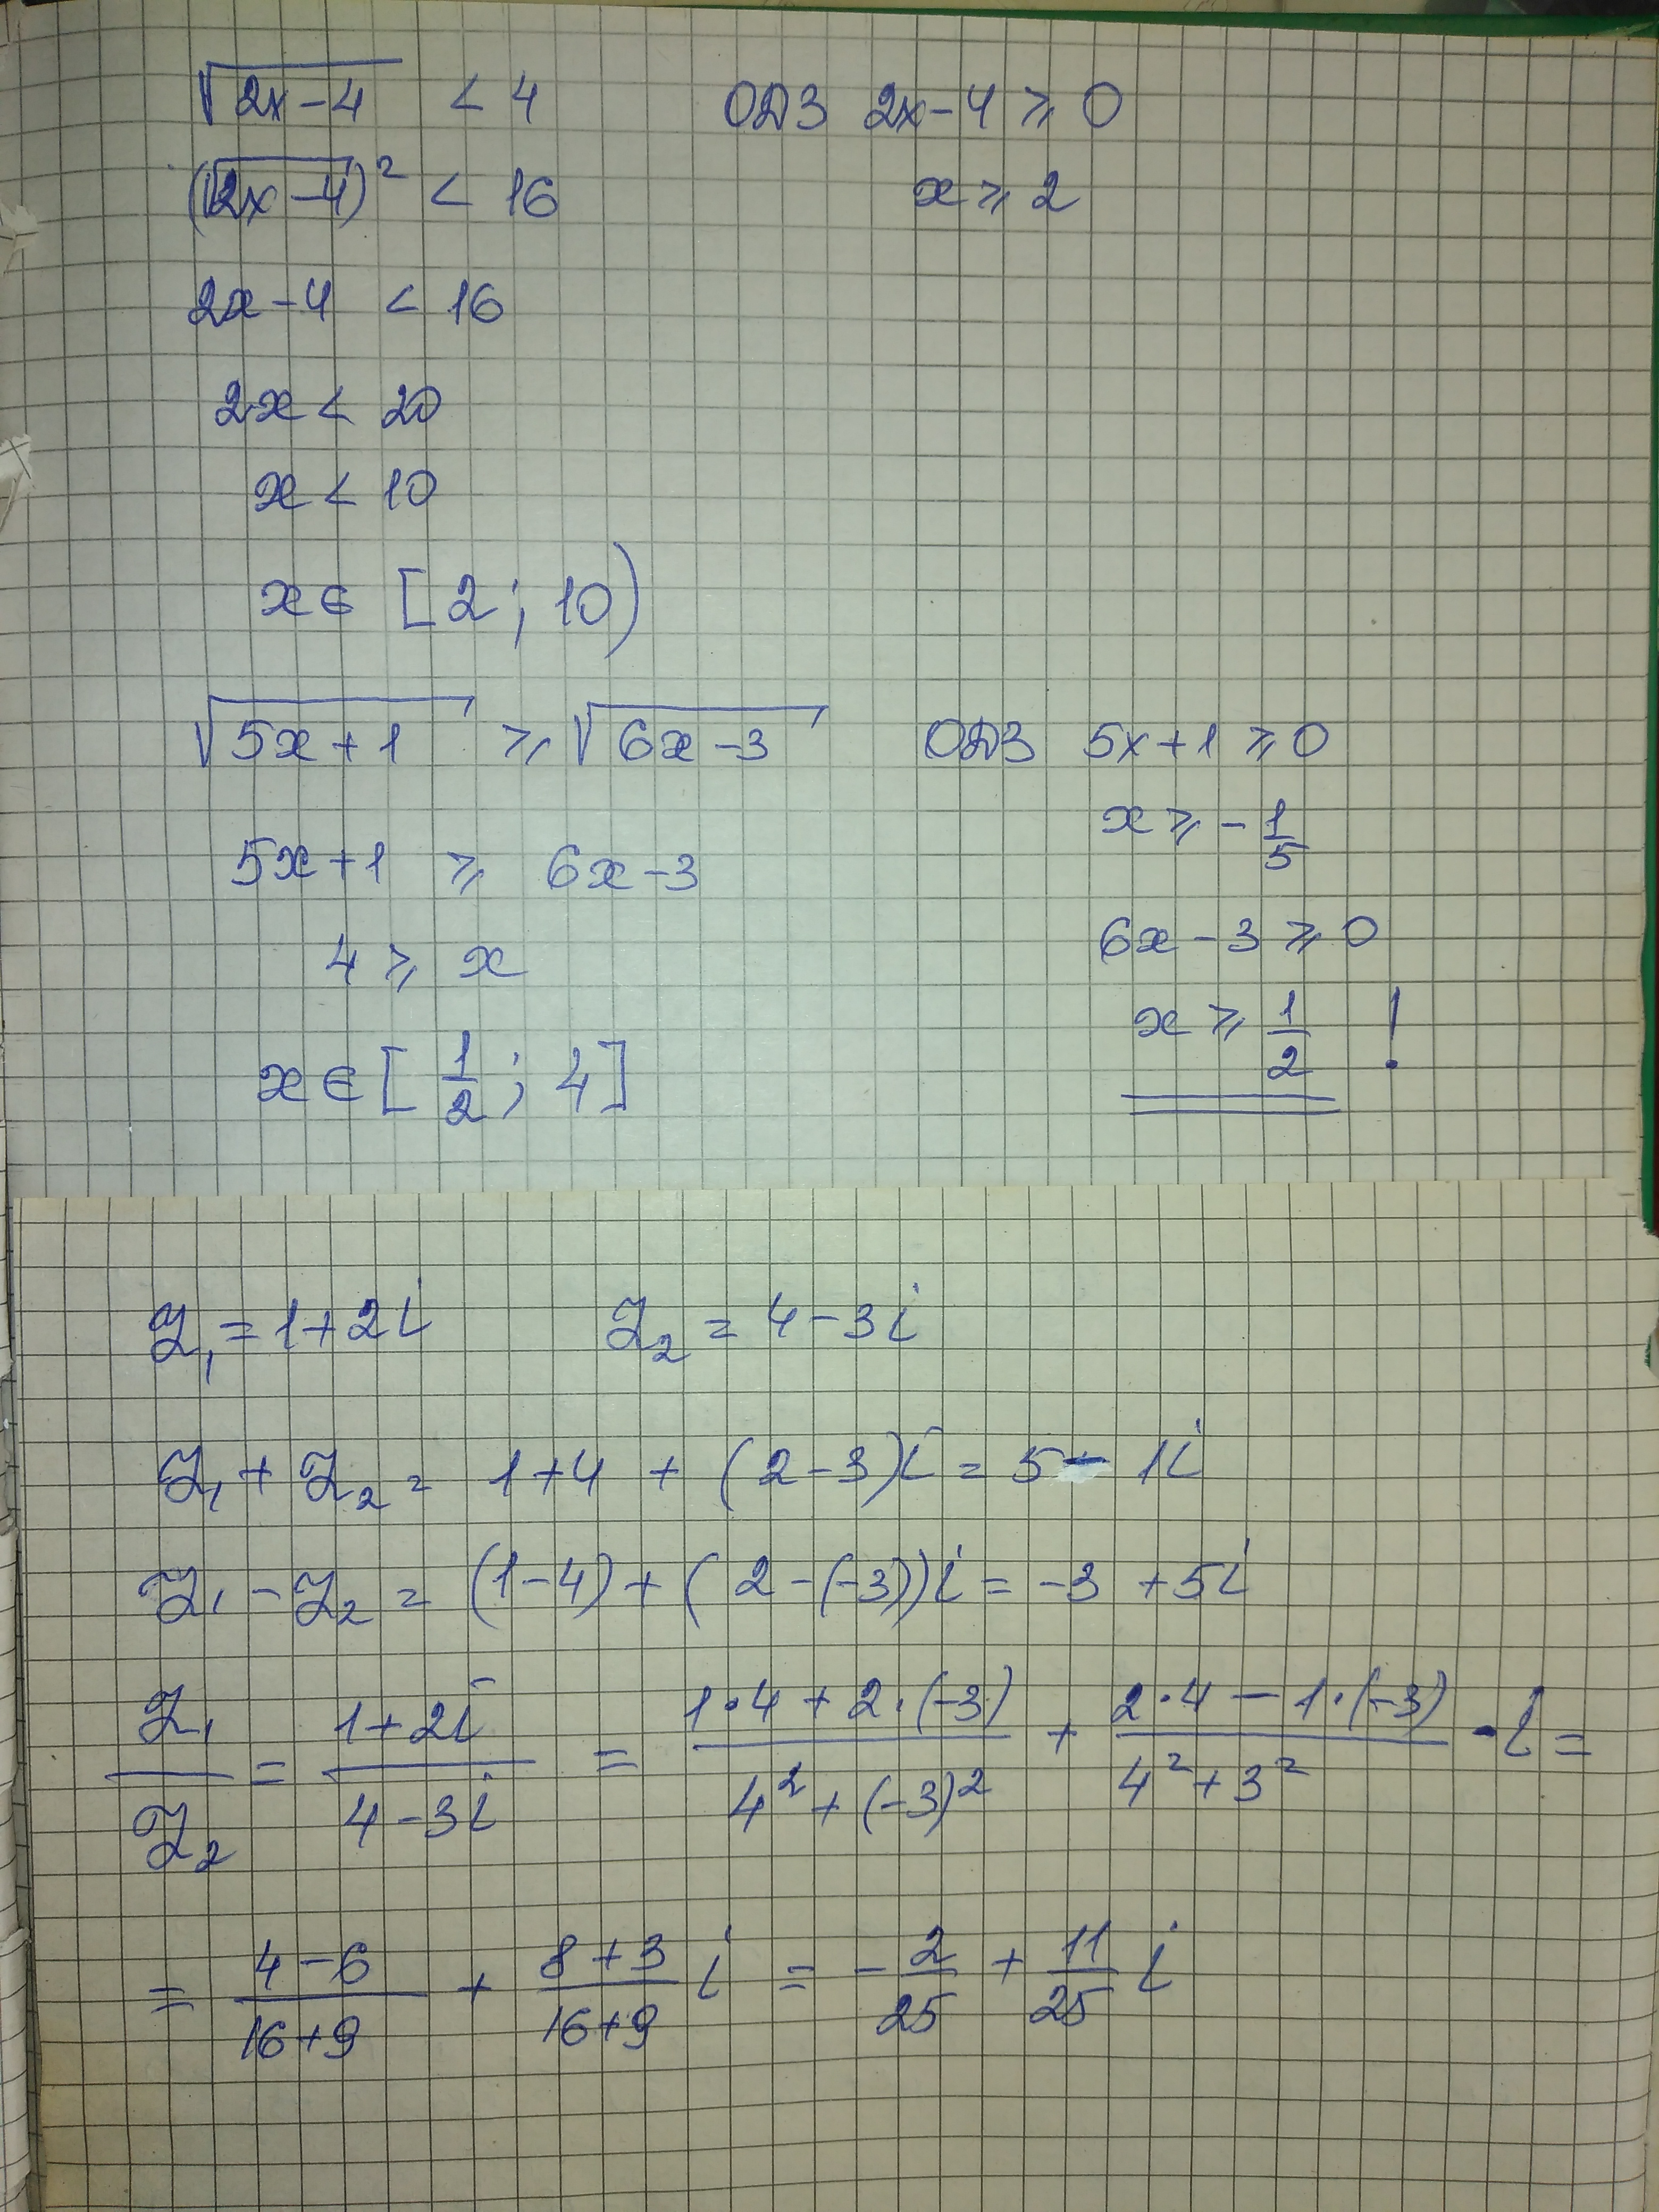 √(2x-4) < 4 ОДЗ 2x-4 ⩾ 0
(√(2x-4))² < 16 x ⩾ 2
2x-4 < 16
2x < 20
x < 10
x ∈ [2; 10)
√(5x+1) ⩾ √(6x-3) ОДЗ 5x+1 ⩾ 0
x ⩾ -1/5
5x+1 ⩾ 6x-3
6x-3 ⩾ 0
4 ⩾ x
x ⩾ 1/2 !
x ∈ [1/2; 4]
Z₁ = 1+2i Z₂ = 4-3i
Z₁ + Z₂ = 1+4 + (2-3)i = 5 - 1i
Z₁ - Z₂ = (1-4) + (2-(-3))i = -3 +5i
Z₁/Z₂ = (1+2i)/(4-3i) = (1·4+2·(-3))/(4²+(-3)²) + (2·4-1·(-3))/(4²+3²) · i =
= (4-6)/(16+9) + (8+3)/(16+9) i = -2/25 + 11/25 i